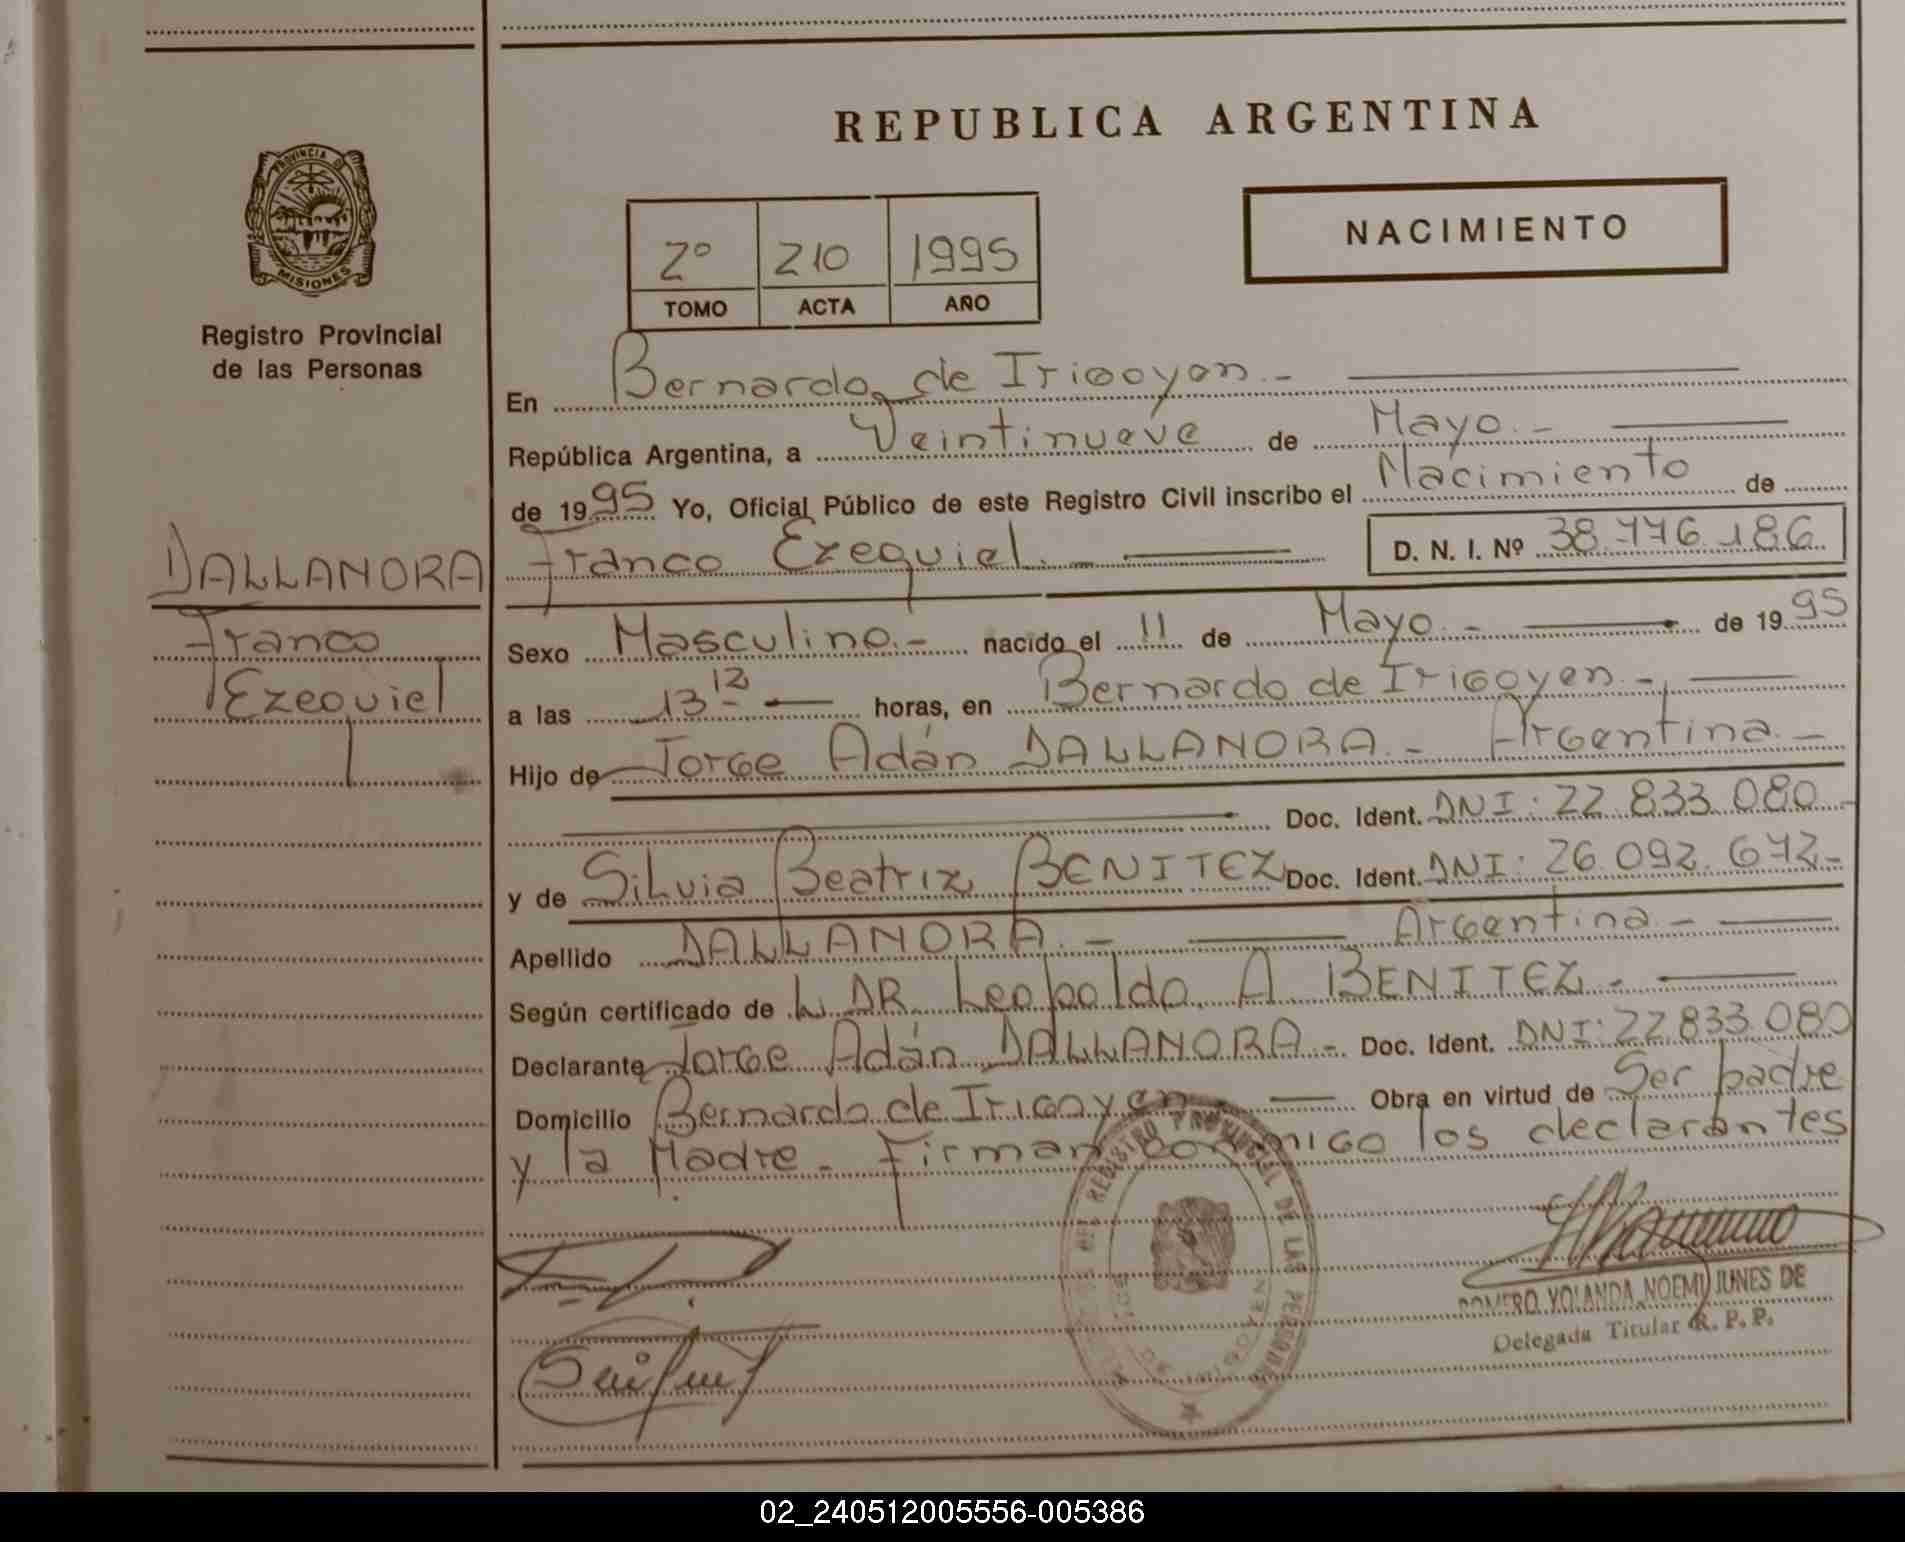 REPUBLICA ARGENTINA
PROVINCIA DE
MISIONES
Registro Provincial
de las Personas
NACIMIENTO
2º 210 1995
TOMO ACTA AÑO
En Bernardo de Irigoyen.-
República Argentina, a Veintinueve de Mayo.-
de 1995 Yo, Oficial Público de este Registro Civil inscribo el Nacimiento de
Franco Ezequiel.- D. N. I. Nº 38.776.186
DALLANORA
Franco
Ezequiel
Sexo Masculino.- nacido el 11 de Mayo.- de 1995
a las 13 12 horas, en Bernardo de Irigoyen.-
Hijo de Jorge Adán DALLANORA.- Argentina.-
Doc. Ident. DNI: 22.833.080-
y de Silvia Beatriz BENITEZ Doc. Ident. DNI: 26.092.672-
Apellido DALLANORA.- Argentina.-
Según certificado de L. DR. Leopoldo A BENITEZ.-
Declarante Jorge Adán DALLANORA.- Doc. Ident. DNI: 22.833.080
Domicilio Bernardo de Irigoyen.- Obra en virtud de Ser padre
y la Madre.- Firman conmigo los declarantes
REGISTRO PROVINCIAL DE LAS PERSONAS
ROMERO YOLANDA NOEMI JUNES DE
Delegada Titular R. P. P.
02_240512005556-005386